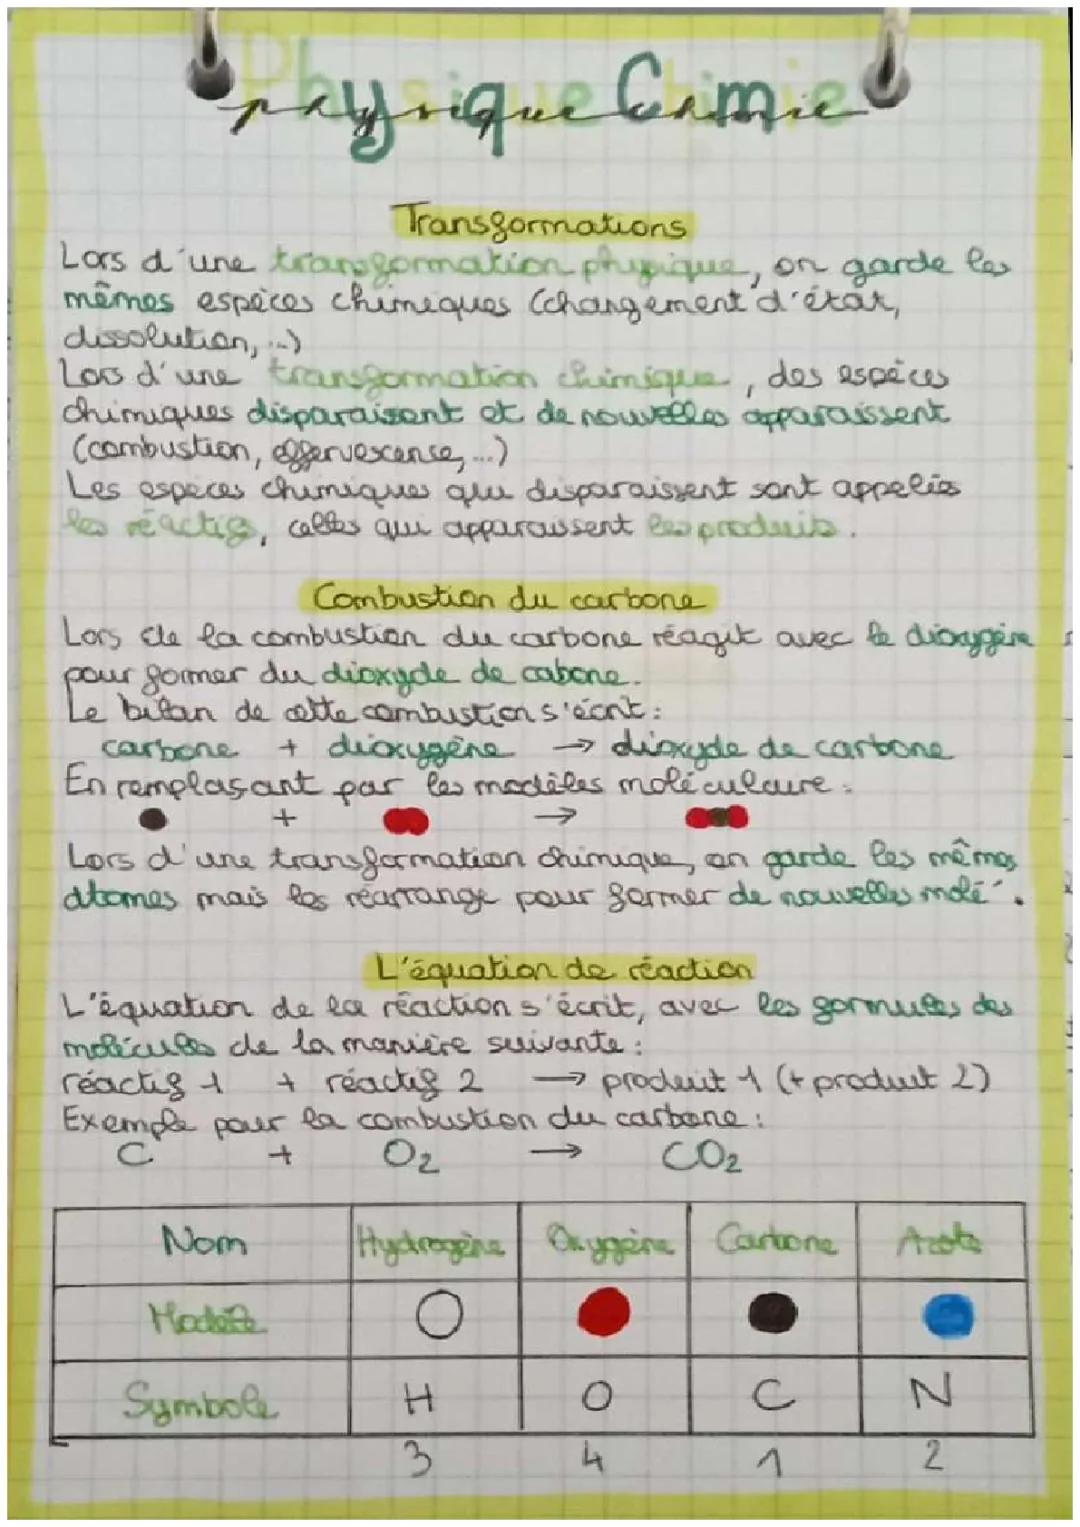 Physique Chimie
physique chimie
Transformations
Lors d'une transformation physique, on garde les
mêmes espèces chimiques (changement d'état,
dissolution, ...)
Lors d'une transformation chimique, des espèces
chimiques disparaissent et de nouvelles apparaissent
(combustion, effervescence, ...)
Les espèces chimiques qui disparaissent sont appelées
les réactifs, celles qui apparaissent les produits.
Combustion du carbone
Lors de la combustion du carbone réagit avec le dioxygène
pour former du dioxyde de cabone.
Le bilan de cette combustion s'écrit :
carbone + dioxygène → dioxyde de carbone
En remplaçant par les modèles moléculaire :
+ →
Lors d'une transformation chimique, on garde les mêmes
atomes mais les réarrange pour former de nouvelles molé.
L'équation de réaction
L'équation de la réaction s'écrit, avec les formules des
molécules de la manière suivante :
réactif 1 + réactif 2 → produit 1 (+ produit 2)
Exemple pour la combustion du carbone :
C + O2 → CO2
Nom Hydrogène Oxygène Carbone Azote
Modèle
Symbole H O C N
3 4 1 2